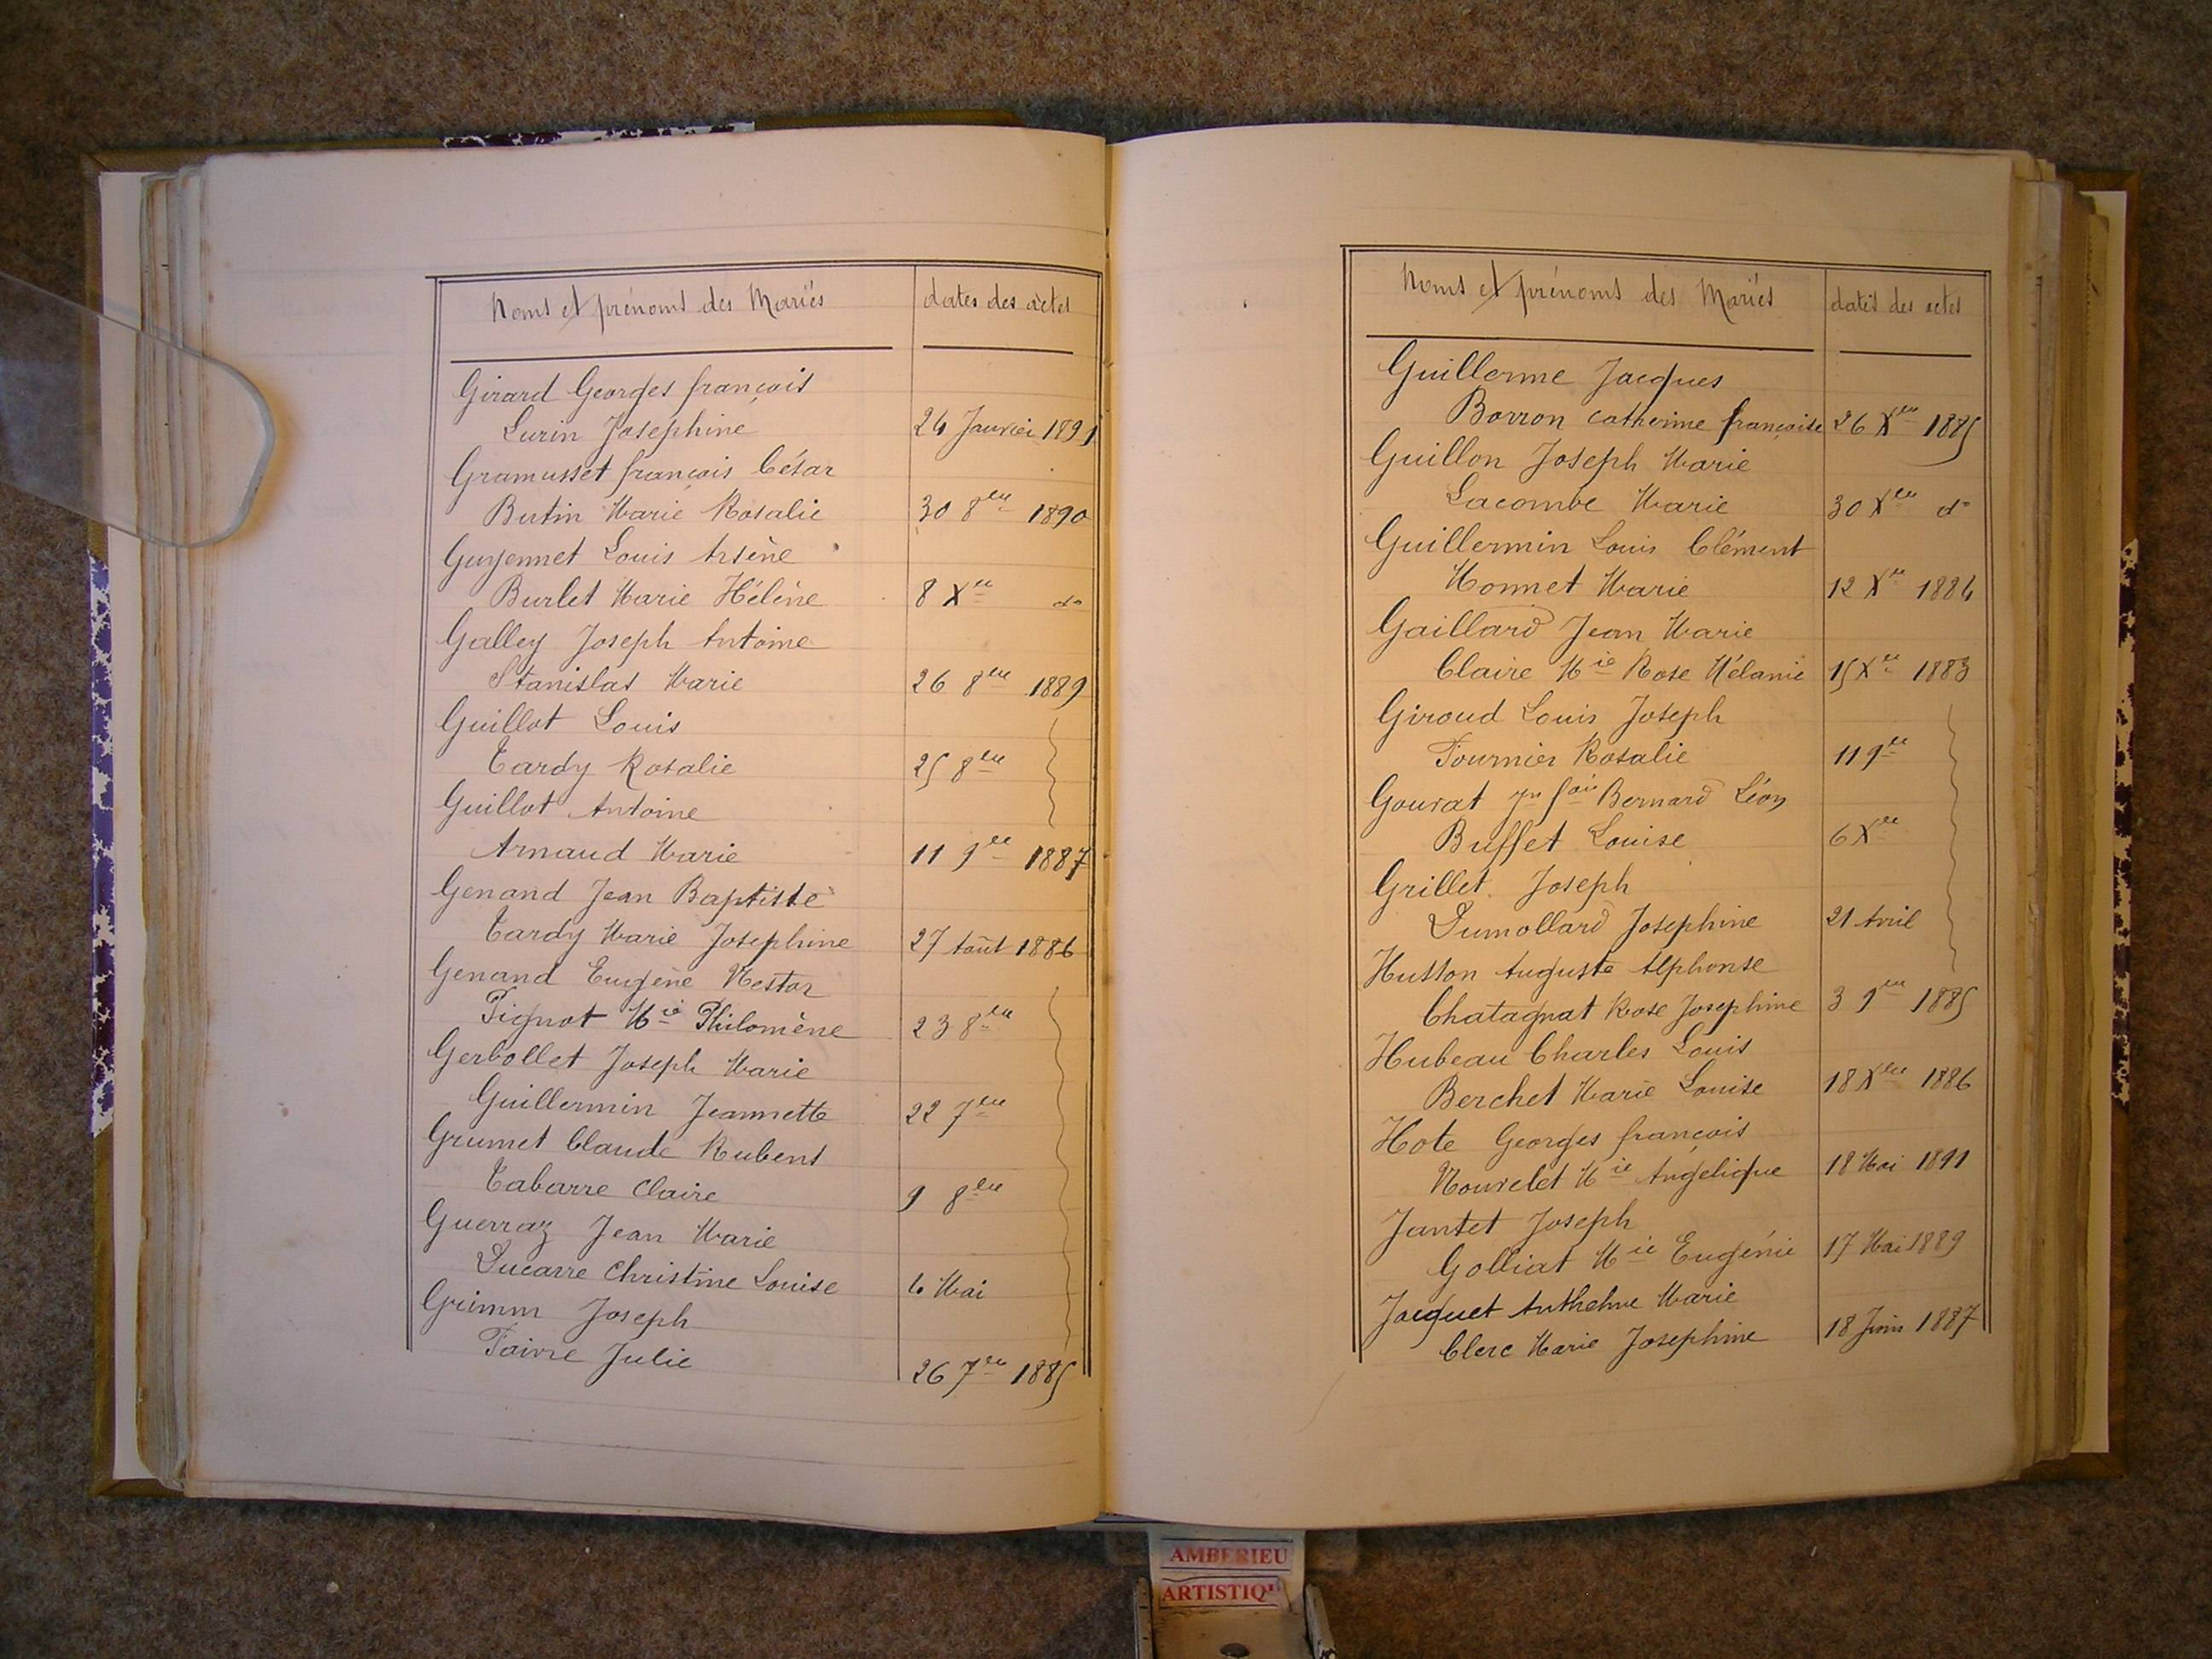 Noms et prénoms des Mariés dates des actes
Girard Georges françois
Lurin Josephine 24 Janvier 1891
Gramusset françois César
Butin Marie Rosalie 30 8bre 1890
Guyennet Louis Arsène
Burlet Marie Hélène 8 Xre do
Galley Joseph Antoine
Stanislas Marie 26 8bre 1889
Guillot Louis
Tardy Rosalie 25 8bre
Guillot Antoine
Arnaud Marie 11 9bre 1887
Genand Jean Baptiste
Tardy Marie Josephine 27 Août 1886
Genand Eugène Nestor
Pignot Mie Philomène 23 8bre
Gerbollet Joseph Marie
Guillermin Jeannette 22 7bre
Grumet Claude Rubens
Tabarre Claire 9 8bre
Guerraz Jean Marie
Ducarre Christine Louise 4 Mai
Grimm Joseph
Faivre Julie 26 7bre 1885
Noms et prénoms des Mariés dates des actes
Guillerme Jacques
Borron Catherine françoise 26 Xbre 1885
Guillon Joseph Marie
Lacombe Marie 30 Xbre do
Guillermin Louis Clément
Monnet Marie 12 Xre 1884
Gaillard Jean Marie
Claire Mie Rose Mélanie 15 Xre 1883
Giroud Louis Joseph
Fournier Rosalie 11 9re
Gourat Jn fois Bernard Léon
Buffet Louise 6 Xre
Grillet Joseph
Dumollard Josephine 21 Avril
Husson Auguste Alphonse
Chatagnat Rose Josephine 3 9bre 1885
Hubeau Charles Louis
Berchet Marie Louise 18 Xbre 1886
Hote Georges françois
Nourelet Mie Angélique 18 Mai 1891
Jantet Joseph
Golliat Mie Eugénie 17 Mai 1889
Jacquet Anthelme Marie
Clerc Marie Josephine 18 Juin 1887
AMBERIEU
ARTISTIQU